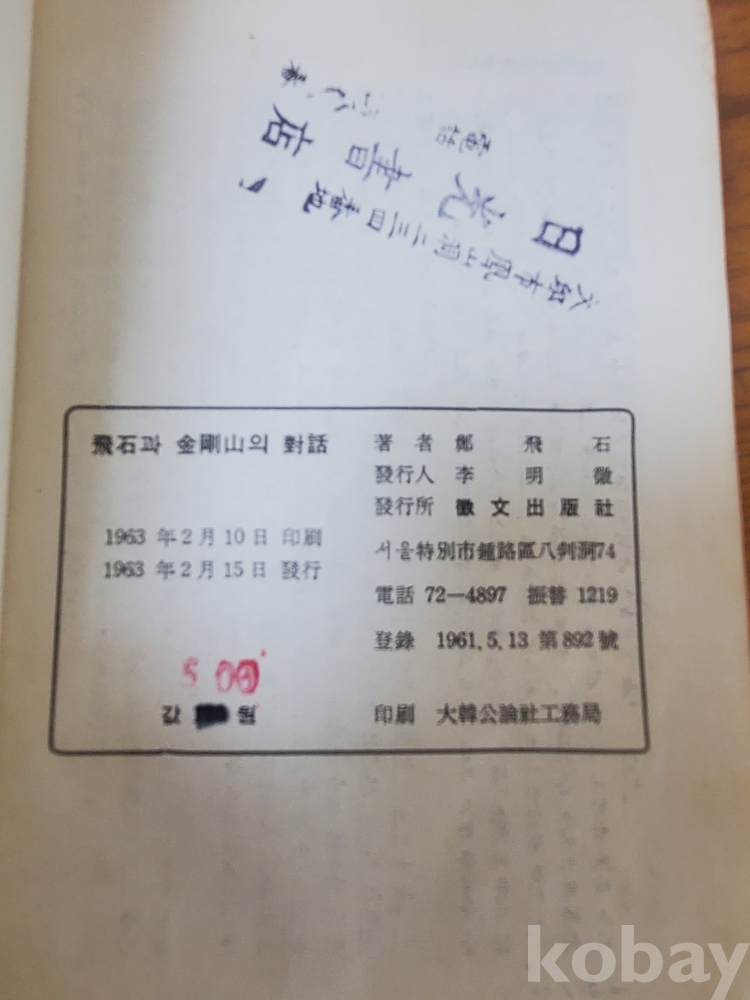 大邱市鳳山洞二三四番地
日光書店
電話
飛石과 金剛山의 對話
1963 年 2 月 10 日 印刷
1963 年 2 月 15 日 發行
500
값
著者 鄭飛石
發行人 李明徽
發行所 徽文出版社
서울特別市鍾路區八判洞74
電話 72—4897 振替 1219
登錄 1961. 5. 13 第892號
印刷 大韓公論社工務局
kobay